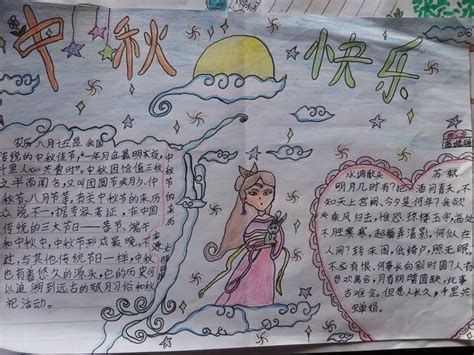 中秋 快乐
农历八月十五是我国
传统的中秋佳节,"一年月色最明夜,
千里人心共赏时"中秋日恰值三秋
之半而闻名,又叫团圆节或月夕、仲
秋节、八月节等,有关中秋节的来历
众说不一,据专家考证,在中国
传统的三大节日——春节、端午
和中秋中,中秋节形成最晚,不
过,与其他传统节日一样,中秋
也有着悠久的源头,它的历史可
以追溯到远古的敬月习俗和秋
祀活动。
中秋节的来历
水调歌头 苏轼
明月几时有?把酒问青天。不
知天上宫阙,今夕是何年?我欲
乘风归去,惟恐琼楼玉宇,高处
不胜寒,起舞弄清影,何似在人
间?转朱阁,低绮户,照无眠。
不应有恨,何事长向别时圆?人有
悲欢离合,月有阴晴圆缺,此事
古难全。但愿人长久,千里共
婵娟。